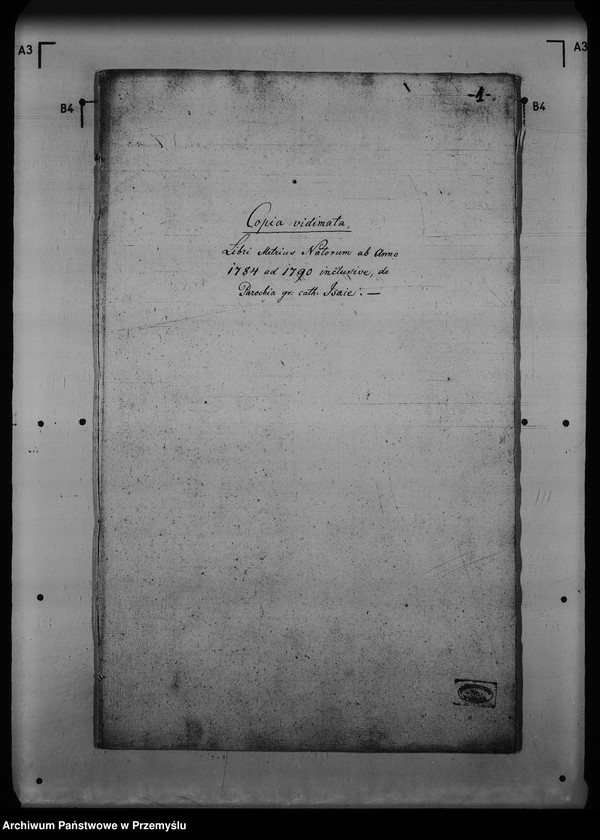 A3
A3
-1-
B4
B4
Copia vidimata,
Libri Metrices Natorum ab Anno
1784 ad 1790 inclusive, de
Parochia gr. cath. Isaie. —
Archiwum Państwowe w Przemyślu